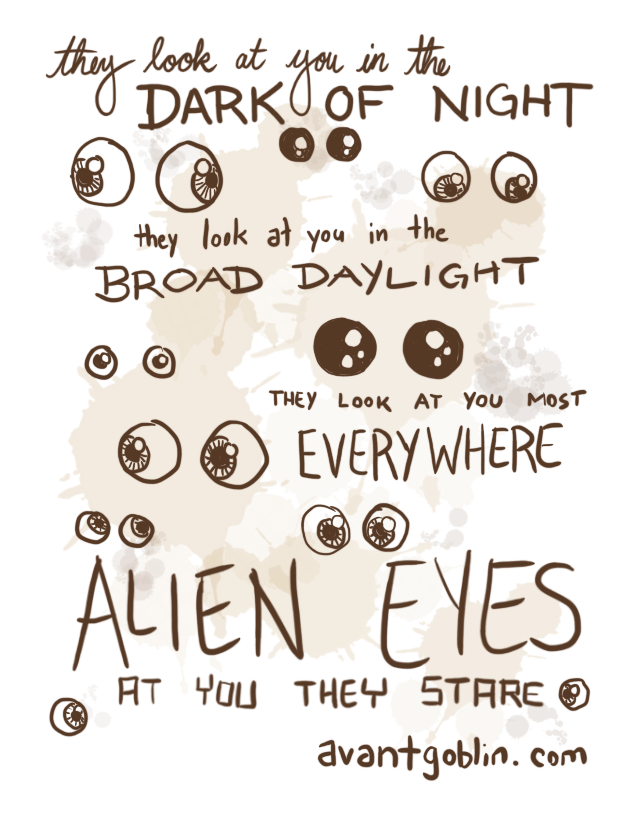 they look at you in the
DARK OF NIGHT
they look at you in the
BROAD DAYLIGHT
THEY LOOK AT YOU MOST
EVERYWHERE
ALIEN EYES
AT YOU THEY STARE
avantgoblin.com